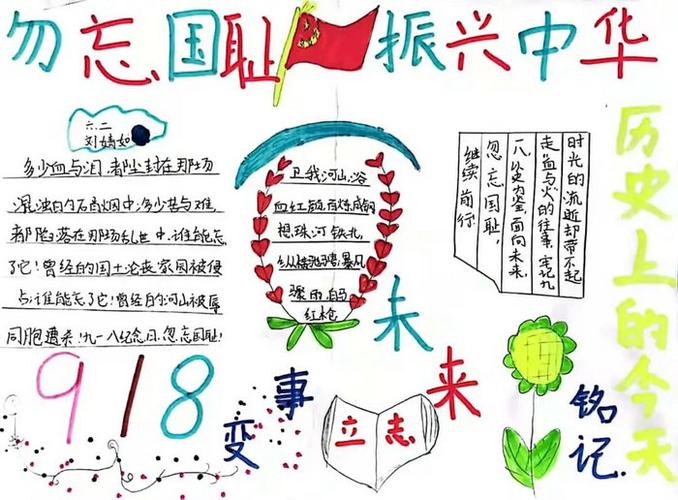 勿忘国耻 振兴中华
历史上的今天
六.二
刘婧如
多少血与泪.都尘封在那场
混浊的硝烟中,多少苦与难,
都陷落在那场乱世中.谁能忘
了它!曾经的国土沦丧家园被侵
占谁能忘了它!曾经的河山被辱
同胞遭杀!九一八纪念日.忽忘国耻!
卫我河山,浴
血红颜,百炼成钢
想珠河铁北,
纵横驰骋.暴风
骤雨,白马
红枪
时光的流逝却带不起
走血与火的往事,牢记九
一八,历史为鉴,面向未来,
忽忘国耻,
继续前行.
918
事变
立志
未来
铭记